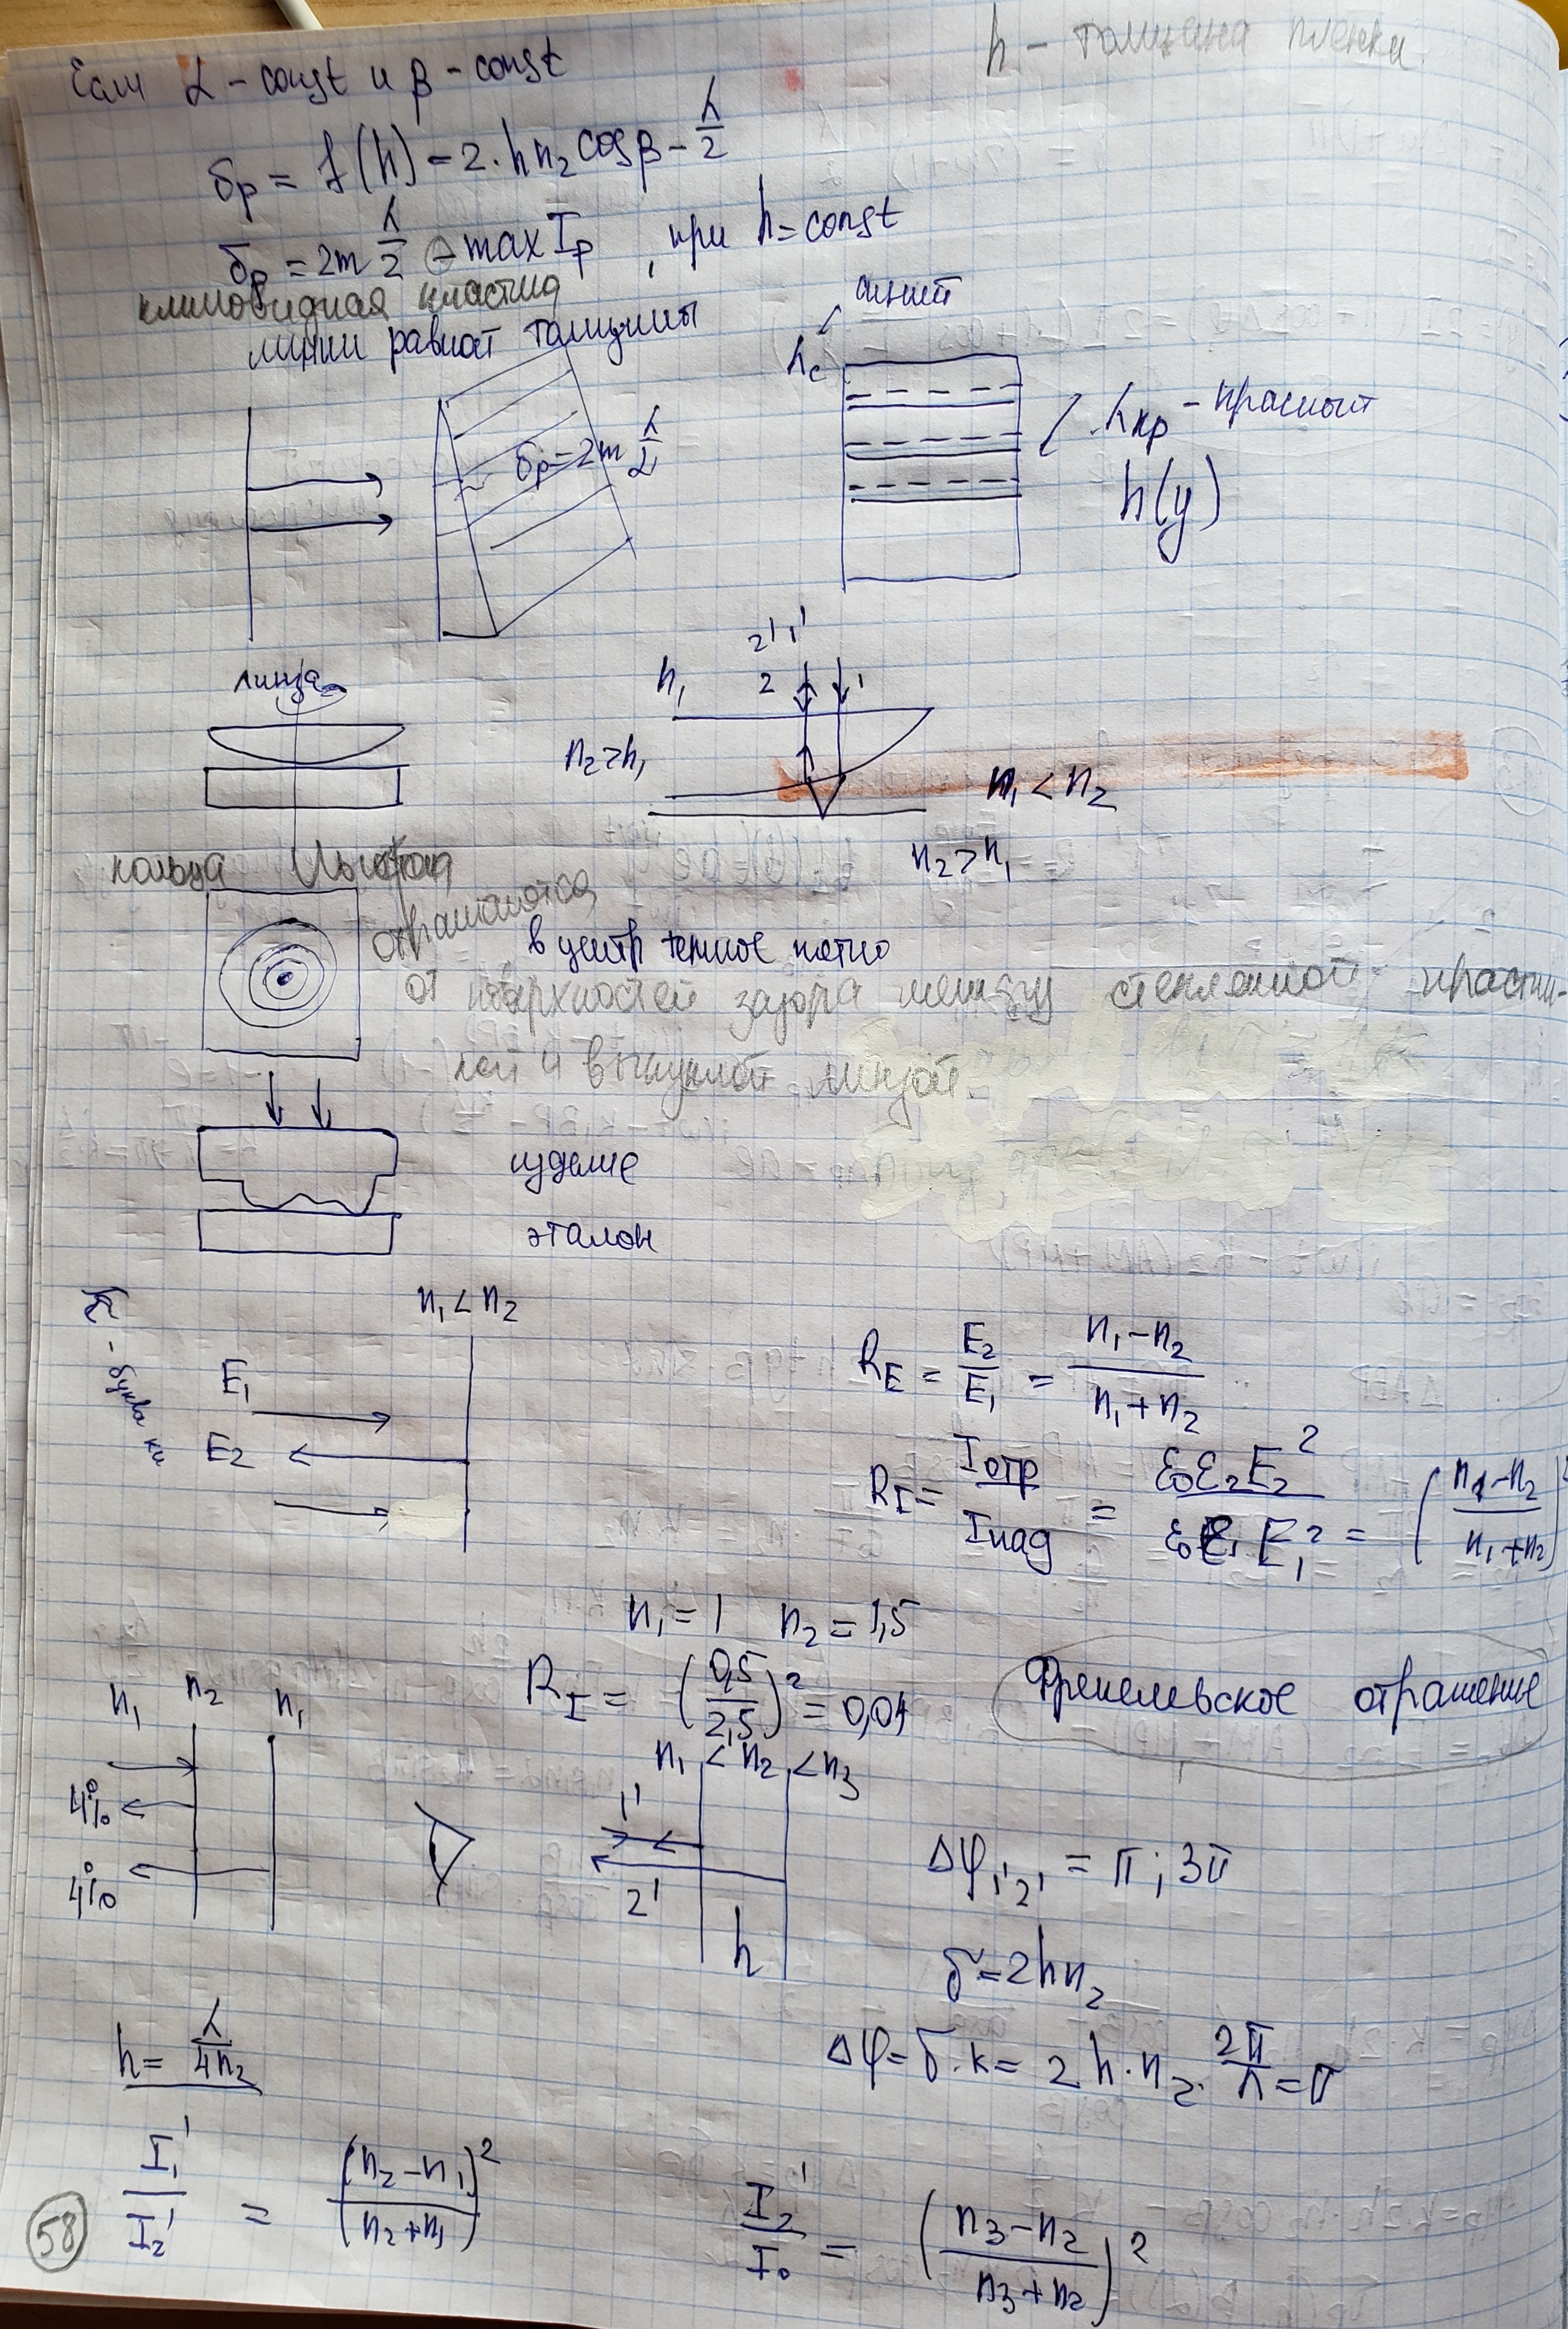 h - толщина пленки.
Если α - const и β - const
δp = f(h) = 2·hn₂ cosβ - λ/2
δp = 2m λ/2 - max Ip, при h = const
клиновидная пластина
линии равной толщины
синий
hc
hкр - красный
δp = 2m λ/2
h(y)
линза
2' 1'
h₁ 2 1
n₂>n₁
n₁ < n₂
n₂ > n₁
кольца Ньютона
отражаются
в центр темное пятно
от поверхностей зазора между стеклянной пластин-
кой и выпуклой линзой.
изделие
эталон
n₁ < n₂
λ - буква
E₁
E₂
R_E = E₂/E₁ = (n₁ - n₂)/(n₁ + n₂)
R_I = Iотр/Iпад = ε₀ε₂E₂²/ε₀ε₁E₁² = ((n₁ - n₂)/(n₁ + n₂))²
n₁ = 1 n₂ = 1,5
R_I = (0,5/2,5)² = 0,04
Френелевское отражение
n₁ n₂ n₁
4%
4%
n₁ < n₂ < n₃
1'
2'
h
Δφ₁'₂' = π; 3π
δ = 2hn₂
h = λ/4n₂
Δφ = δ·k = 2h·n₂·2π/λ = π
I₁'/I₂' = ((n₂ - n₁)/(n₂ + n₁))²
I₂'/I₀ = ((n₃ - n₂)/(n₃ + n₂))²
58